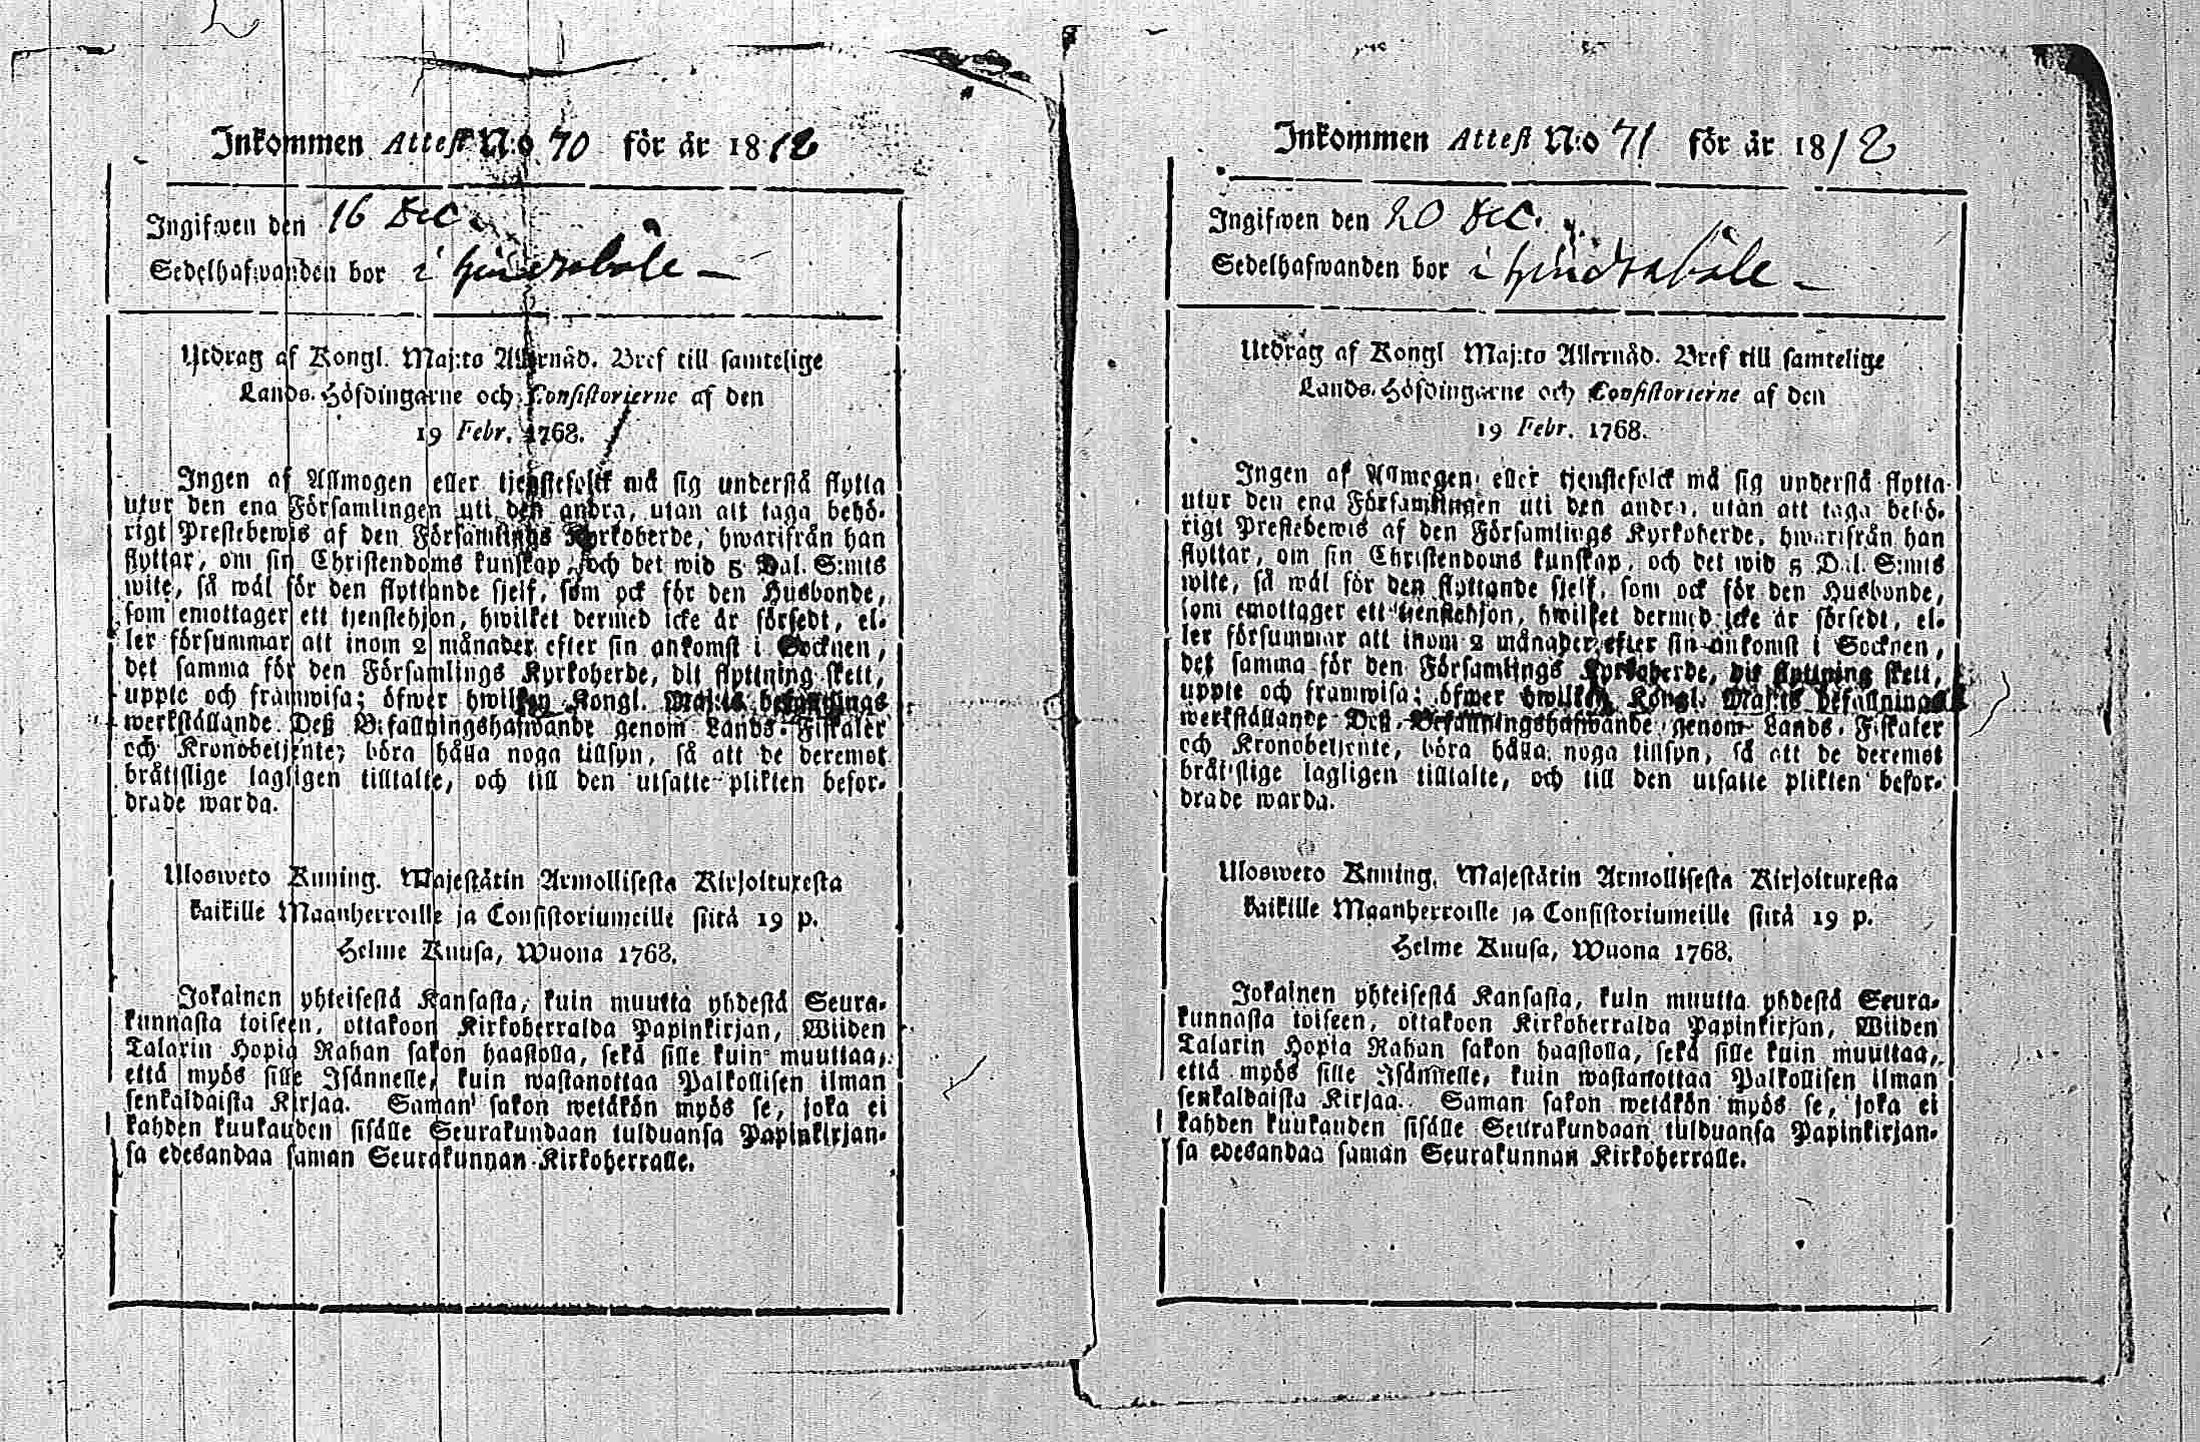 Inkommen Attest N:o 70 för år 1812
Ingifwen den 16 Dec.
Sedelhafwanden bor i Hindrabôle –
Utdrag af Kongl. Maj:ts Allernåd. Bref till samtelige
Lands-Höfdingarne och Consistorierne af den
19 Febr. 1768.
Ingen af Allmogen eller tjenstefolck må sig understå flytta
utur den ena Församlingen uti den andra, utan att taga behö-
rigt Prestebewis af den Församlings Kyrkoherde, hwarifrån han
flyttar, om sin Christendoms kunskap, och det wid 5 Dal. S:mts
wite, så wäl för den flyttande sjelf, som ock för den Husbonde,
som emottager ett tjenstehjon, hwilket dermed icke är försedt, el-
ler försummar att inom 2 månader efter sin ankomst i Socknen,
det samma för den Församlings Kyrkoherde, dit flyttning skett,
uppte och framwisa; öfwer hwilken Kongl. Maj:ts befallnings
werkställande Deß Befallningshafwande genom Lands-Fiskaler
och Kronobetjente, böra hålla noga tillsyn, så att de deremot
bråtislige lagligen tilltalte, och till den utsatte plikten befor-
drade warda.
Ulosweto Kuning. Majestätin Armollisesta Kirjoituxesta
kaikille Maanherroille ja Consistoriumeille siitä 19 p.
Helme Kuusa, Wuona 1768.
Jokainen yhteisestä Kansasta, kuin muutta yhdestä Seura-
kunnasta toiseen, ottakoon Kirkoherralda Papinkirjan, Wiiden
Talarin Hopia Rahan sakon haastolla, sekä sille kuin muuttaa,
että myös sille Isännelle, kuin wastanottaa Palkollisen ilman
senkaldaista Kirjaa. Saman sakon wetäkön myös se, joka ei
kahden kuukauden sisälle Seurakundaan tulduansa Papinkirjan-
sa edesandaa saman Seurakunnan Kirkoherralle.
Inkommen Attest N:o 71 för år 1812
Ingifwen den 20 Dec.
Sedelhafwanden bor i Hindrabôle –
Utdrag af Kongl Maj:ts Allernåd. Bref till samtelige
Lands-Höfdingarne och Consistorierne af den
19 Febr. 1768.
Ingen af Allmogen eller tjenstefolck må sig understå flytta
utur den ena Församlingen uti den andra, utan att taga behö-
rigt Prestebewis af den Församlings Kyrkoherde, hwarifrån han
flyttar, om sin Christendoms kunskap, och det wid 5 Dal. S:mts
wite, så wäl för den flyttande sjelf, som ock för den Husbonde,
som emottager ett tjenstehjon, hwilket dermed icke är försedt, el-
ler försummar att inom 2 månader efter sin ankomst i Socknen,
det samma för den Församlings Kyrkoherde, dit flyttning skett,
uppte och framwisa; öfwer hwilken Kongl. Maj:ts befallnings
werkställande Deß Befallningshafwande genom Lands-Fiskaler
och Kronobetjente, böra hålla noga tillsyn, så att de deremot
bråtislige lagligen tilltalte, och till den utsatte plikten befor-
drade warda.
Ulosweto Kuning. Majestätin Armollisesta Kirjoituxesta
kaikille Maanherroille ja Consistoriumeille siitä 19 p.
Helme Kuusa, Wuona 1768.
Jokainen yhteisestä Kansasta, kuin muutta yhdestä Seura-
kunnasta toiseen, ottakoon Kirkoherralda Papinkirjan, Wiiden
Talarin Hopia Rahan sakon haastolla, sekä sille kuin muuttaa,
että myös sille Isännelle, kuin wastanottaa Palkollisen ilman
senkaldaista Kirjaa. Saman sakon wetäkön myös se, joka ei
kahden kuukauden sisälle Seurakundaan tulduansa Papinkirjan-
sa edesandaa saman Seurakunnan Kirkoherralle.